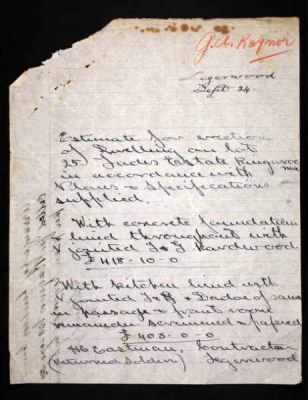 G.A. Raynor
Legerwood
Sept 24.
Estimate for erection
of Dwelling on lot
25 Estate Ringarooma
in accordance with
Plans & Specifications
supplied.
With concrete foundation
lined throughout with
jointed T & G Hardwood.
£418-10-0
With kitchen lined with
jointed T & G Dado of same
in passage & front room
remainder scrimmed & papered
£405-0-0
Eastman, Contractor
(Returned Soldier) Legerwood